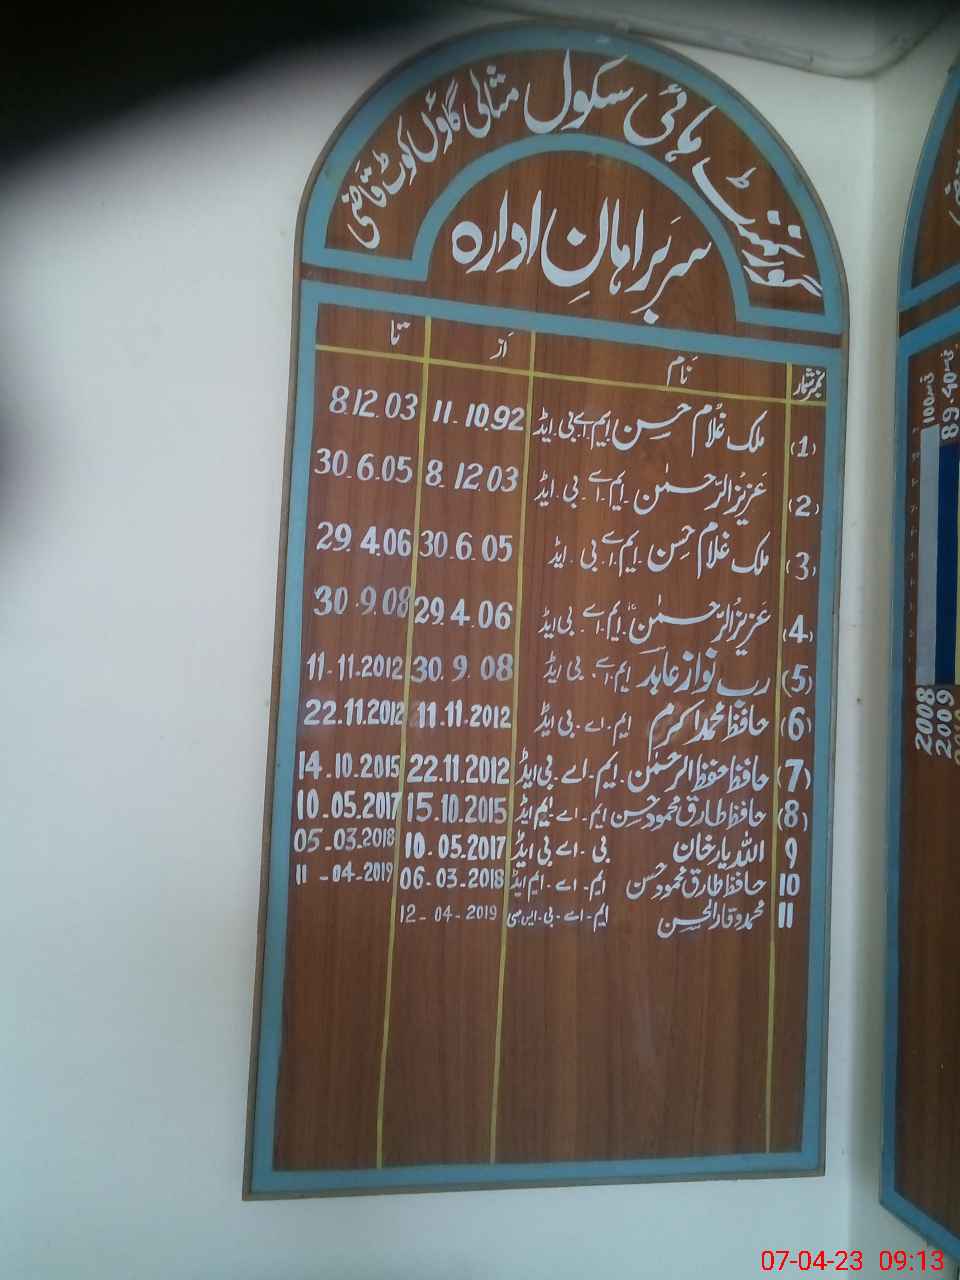 گورنمنٹ ہائی سکول مثالی گاؤں کوٹ قاضی
سربراہانِ ادارہ
نمبر شمار نام از تا
(1) ملک غلام حسن ایم اے بی ایڈ 11.10.92 8.12.03
(2) عزیز الرحمٰن ایم اے بی ایڈ 8.12.03 30.6.05
(3) ملک غلام حسن ایم اے بی ایڈ 30.6.05 29.4.06
(4) عزیز الرحمٰن ایم اے بی ایڈ 29.4.06 30.9.08
(5) رب نواز عابد ایم اے بی ایڈ 30.9.08 11-11-2012
(6) حافظ محمد اکرم ایم-اے-بی ایڈ 11-11-2012 22.11.2012
(7) حافظ حفظ الرحمٰن ایم-اے-بی ایڈ 22.11.2012 14-10-2015
(8) حافظ طارق محمود حسن ایم-اے-ایم ایڈ 15.10.2015 10-05-2017
9 اللہ یار خان بی-اے-بی ایڈ 10.05.2017 05-03-2018
10 حافظ طارق محمود حسن ایم-اے-ایم ایڈ 06-03-2018 11-04-2019
11 محمد وقار الحسن ایم-اے-بی-ایس سی 12-04-2019
100%
89.40%
2008
2009
07-04-23 09:13